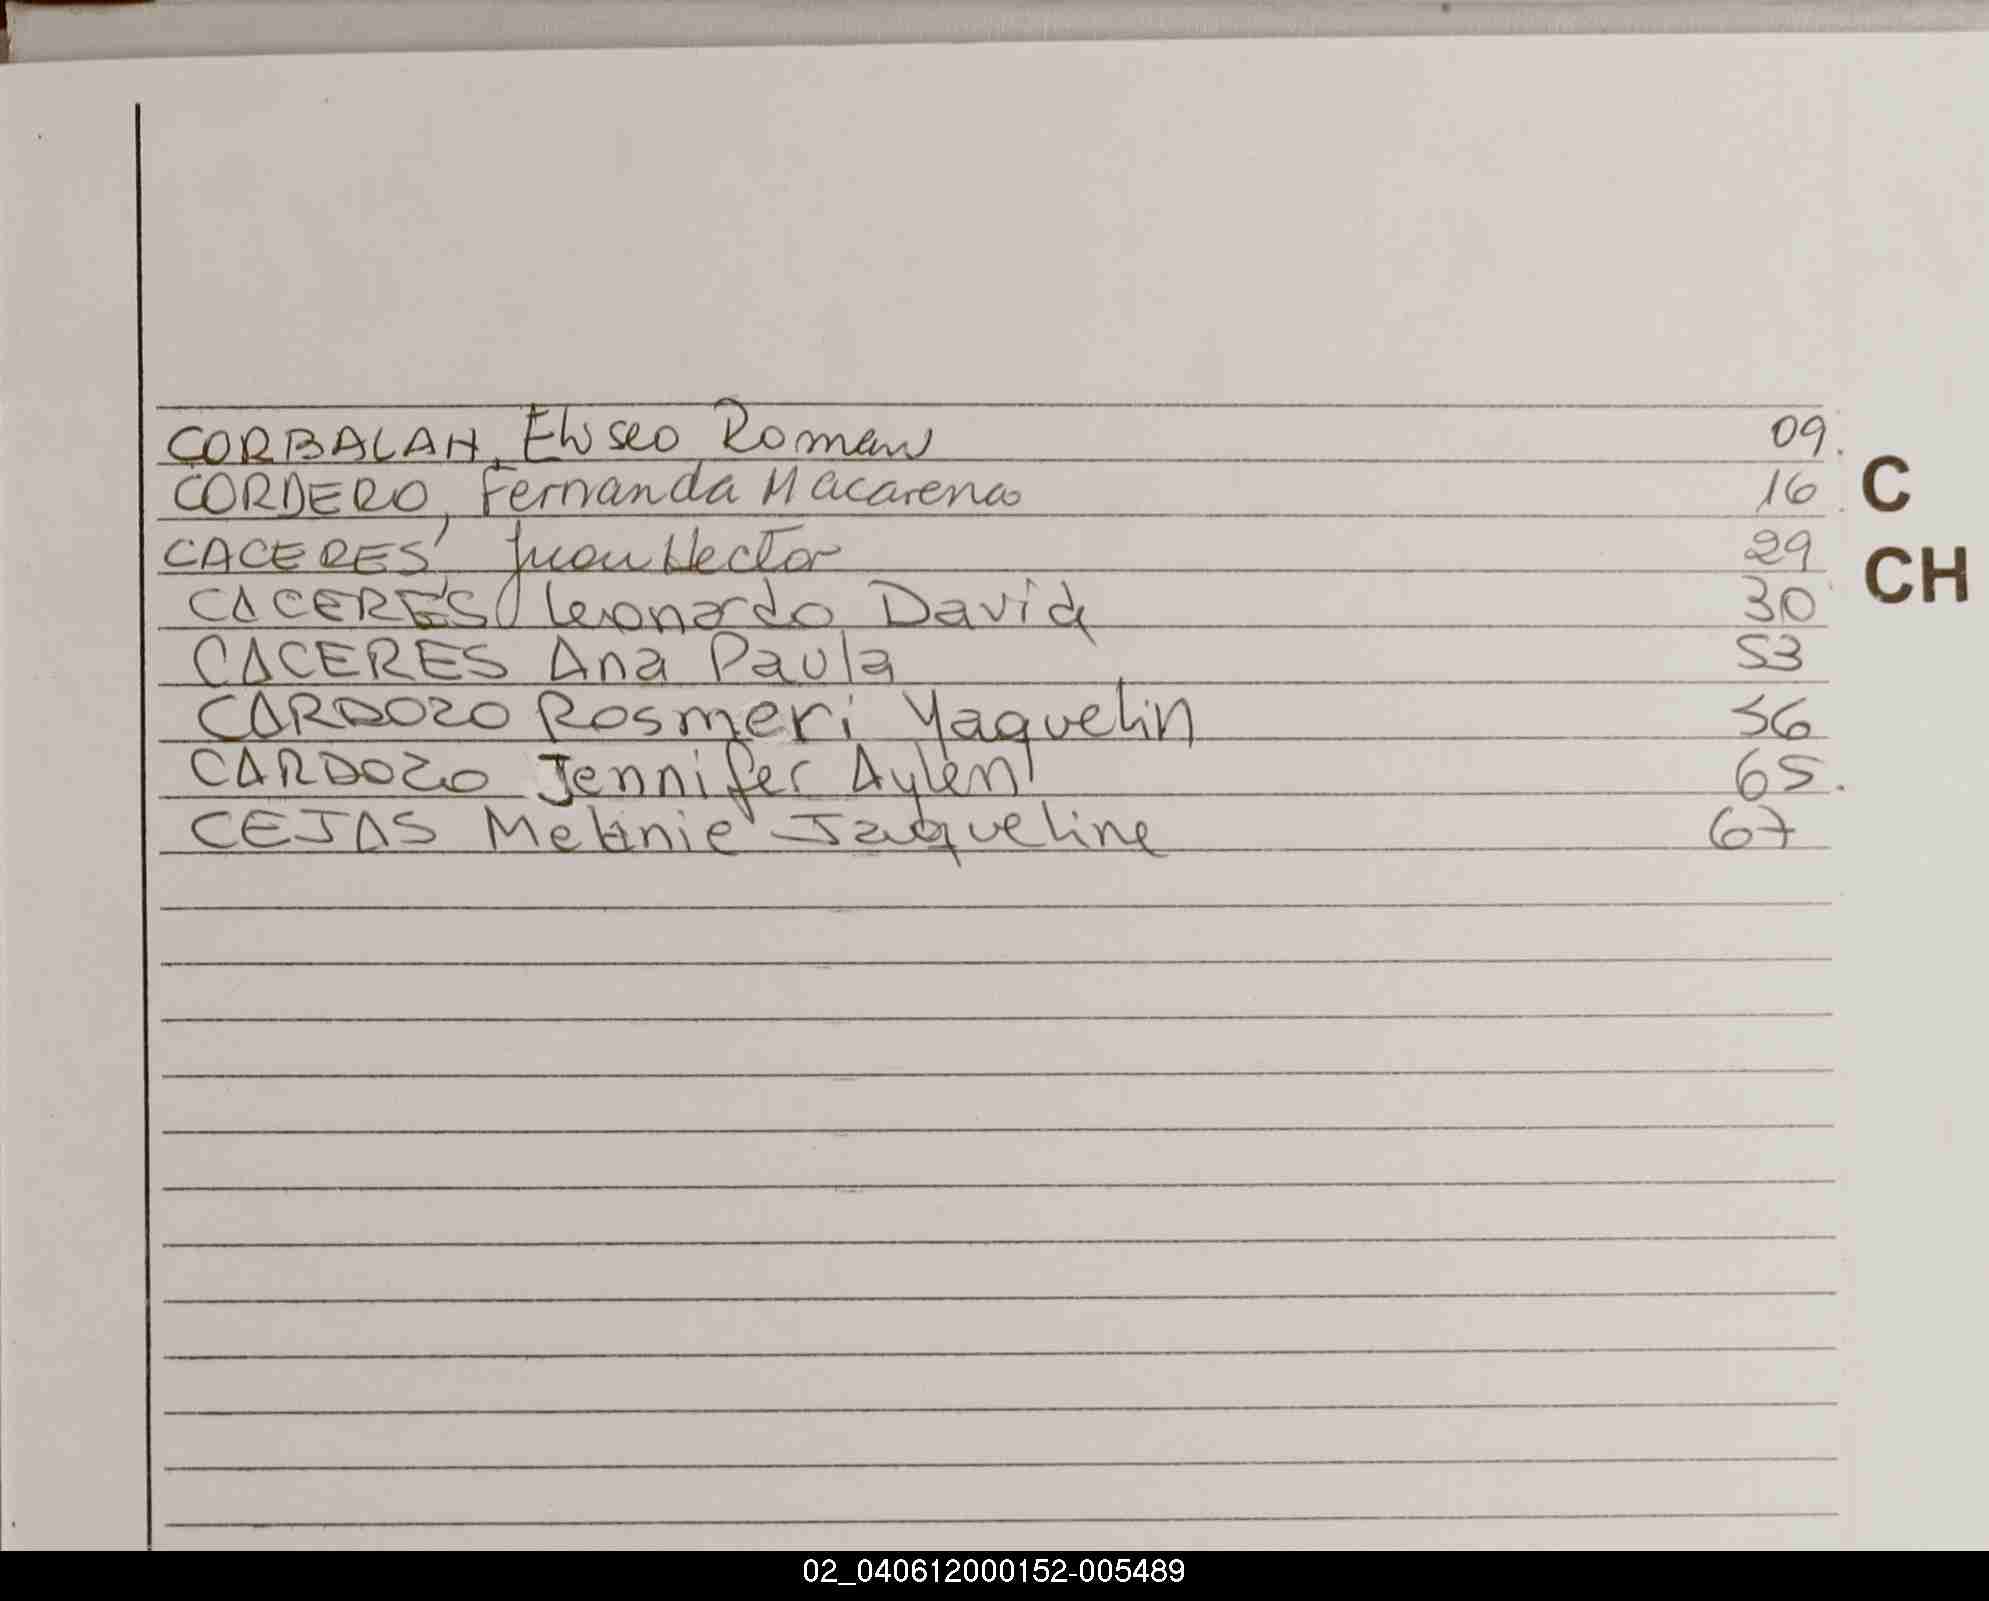 CORBALAN, Eliseo Roman 09.
CORDERO, Fernanda Macarena 16 C
CACERES, Juan Hector 29 CH
CACERES Leonardo David 30
CACERES Ana Paula 53
CARDOZO Rosmeri Yaquelin 56
CARDOZO Jennifer Aylen 65.
CEJAS Melanie Jaqueline 67
02_040612000152-005489